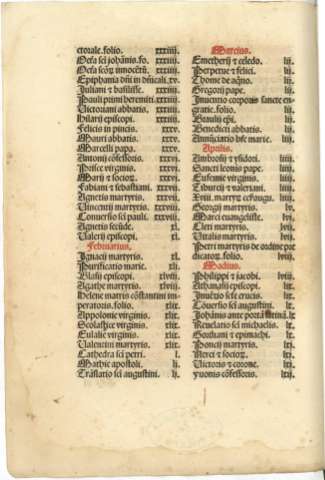 ctorale.folio. xxxiiij.
Octa sci johānis.fo. xxxiiij.
Octa scōꝝ innocētū. xxxiiij.
Epiphania dn̄i in dn̄icali. xv.
Juliani ⁊ basilisse. xxxiiij.
Pauli primi heremiti. xxxiiij.
Victoriani abbatis. xxxiiij.
Hilarij episcopi. xxxiiij.
Felicis in pincis. xxxv.
Mauri abbatis. xxxv.
Marcelli papa. xxxv.
Antonij cōfessoris. xxxv.
Prisce virginis. xxxv.
Marij ⁊ socioꝝ. xxxv.
Fabiani ⁊ sebastiani. xxxvi.
Agnetis martyris. xxxvi.
Vincentij martyris. xxxvij.
Conuersio sci pauli. xxxviij.
Agnetis secūde. xl.
Valerij episcopi. xl.
Februarius.
Ignacij martyris. xl.
Purificatio marie. xl.
Blasij episcopi. xlviij.
Agathe martyris. xlviij.
Helene matris cōstantini imperatoris.folio. xlix.
Appolonie virginis. xlix.
Scolastice virginis. xlix.
Eulalie virginis. xlix.
Valentini martyris. xlix.
Cathedra sci petri. l.
Mathie apostoli. li.
Trāslatio sci augustini. li.
Marcius.
Emetherij ⁊ celedo. lij.
Perpetue ⁊ felici. lij.
Thome de aqino. lij.
Gregorij pape. lij.
Inuentio corporis sancte engratie.folio. lij.
Braulij epi. lij.
Benedicti abbatis. lij.
Annūciatio bte marie. lij.
Aprilis.
Ambrosij ⁊ ysidori. liij.
Sancti leonis pape. liij.
Eufemie virginis. liij.
Tiburcij ⁊ valeriani. liij.
Georgij martyris. lv.
Marci euangeliste. lvi.
Cleti martyris. lvij.
Vitalis martyris. lvij.
Petri martyris de ordine predicatoꝝ.folio. lvij.
Madius.
Philippi ⁊ jacobi. lviij.
Athanasij episcopi. lix.
Inuētio scte crucis. lix.
Cōuersio sci augustini. lx.
Johānis ante portā latinā. lx.
Reuelatio sci michaelis. lx.
Gordiani ⁊ epimachi. lx.
Poncij martyris. lxi.
Nerei ⁊ socioꝝ. lxi.
Victoris ⁊ corone. lxi.
yuonis cōfessoris. lxij.